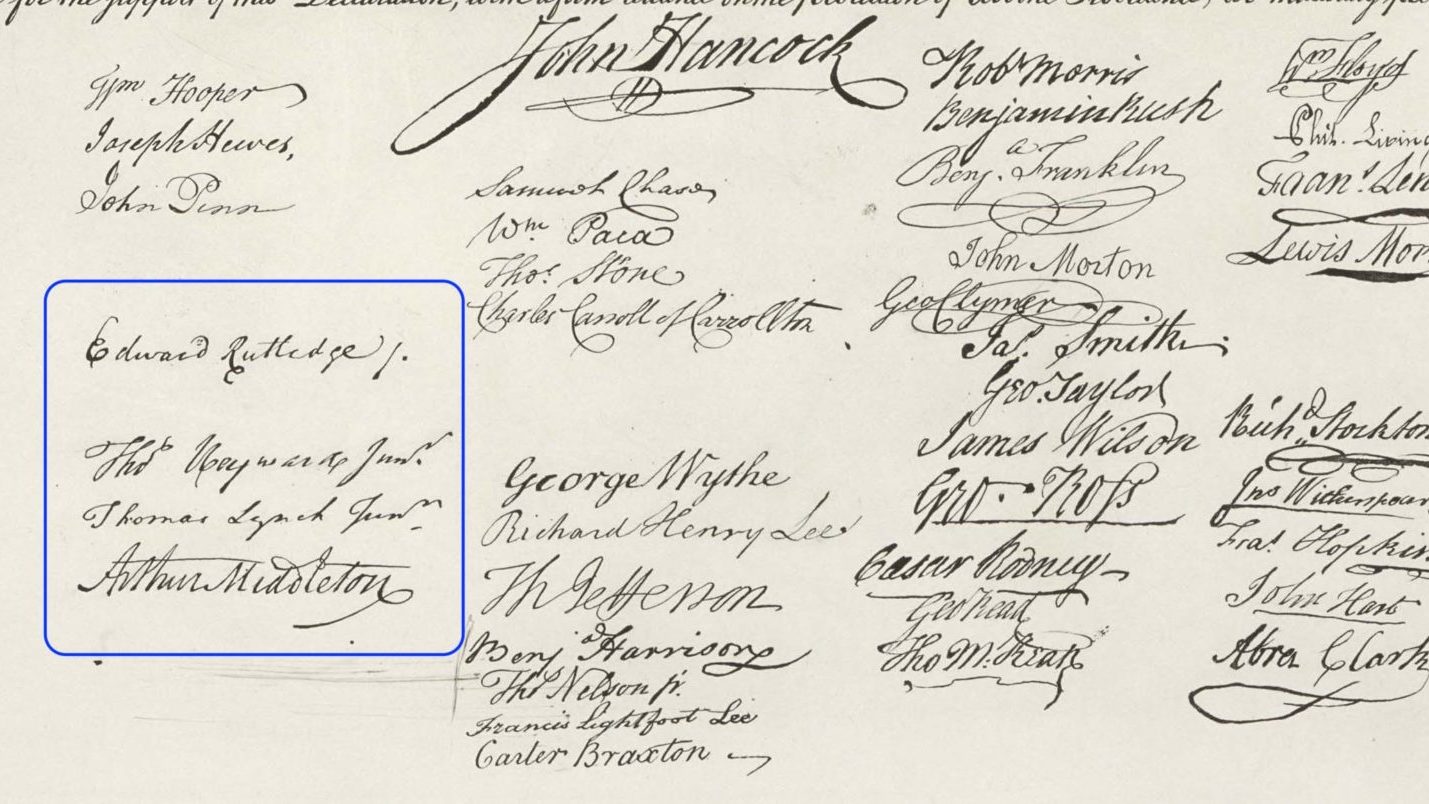 for the support of this Declaration, with a firm reliance on the protection of divine Providence, we mutually
John Hancock
Wm Hooper
Joseph Hewes,
John Penn
Edward Rutledge /.
Thos Heyward Junr.
Thomas Lynch Junr
Arthur Middleton
Samuel Chase
Wm Paca
Thos. Stone
Charles Carroll of Carrollton
George Wythe
Richard Henry Lee
Th Jefferson
Benj Harrison
Thos Nelson jr.
Francis Lightfoot Lee
Carter Braxton
Robt Morris
Benjamin Rush
Benja. Franklin
John Morton
Geo Clymer
Jas. Smith
Geo. Taylor
James Wilson
Geo. Ross
Caesar Rodney
Geo Read
Tho M:Kean
Wm Floyd
Phil. Living
Frans. Lew
Lewis Mor
Richd Stockton
Jno Witherspoon
Fras. Hopkin
John Hart
Abra Clark